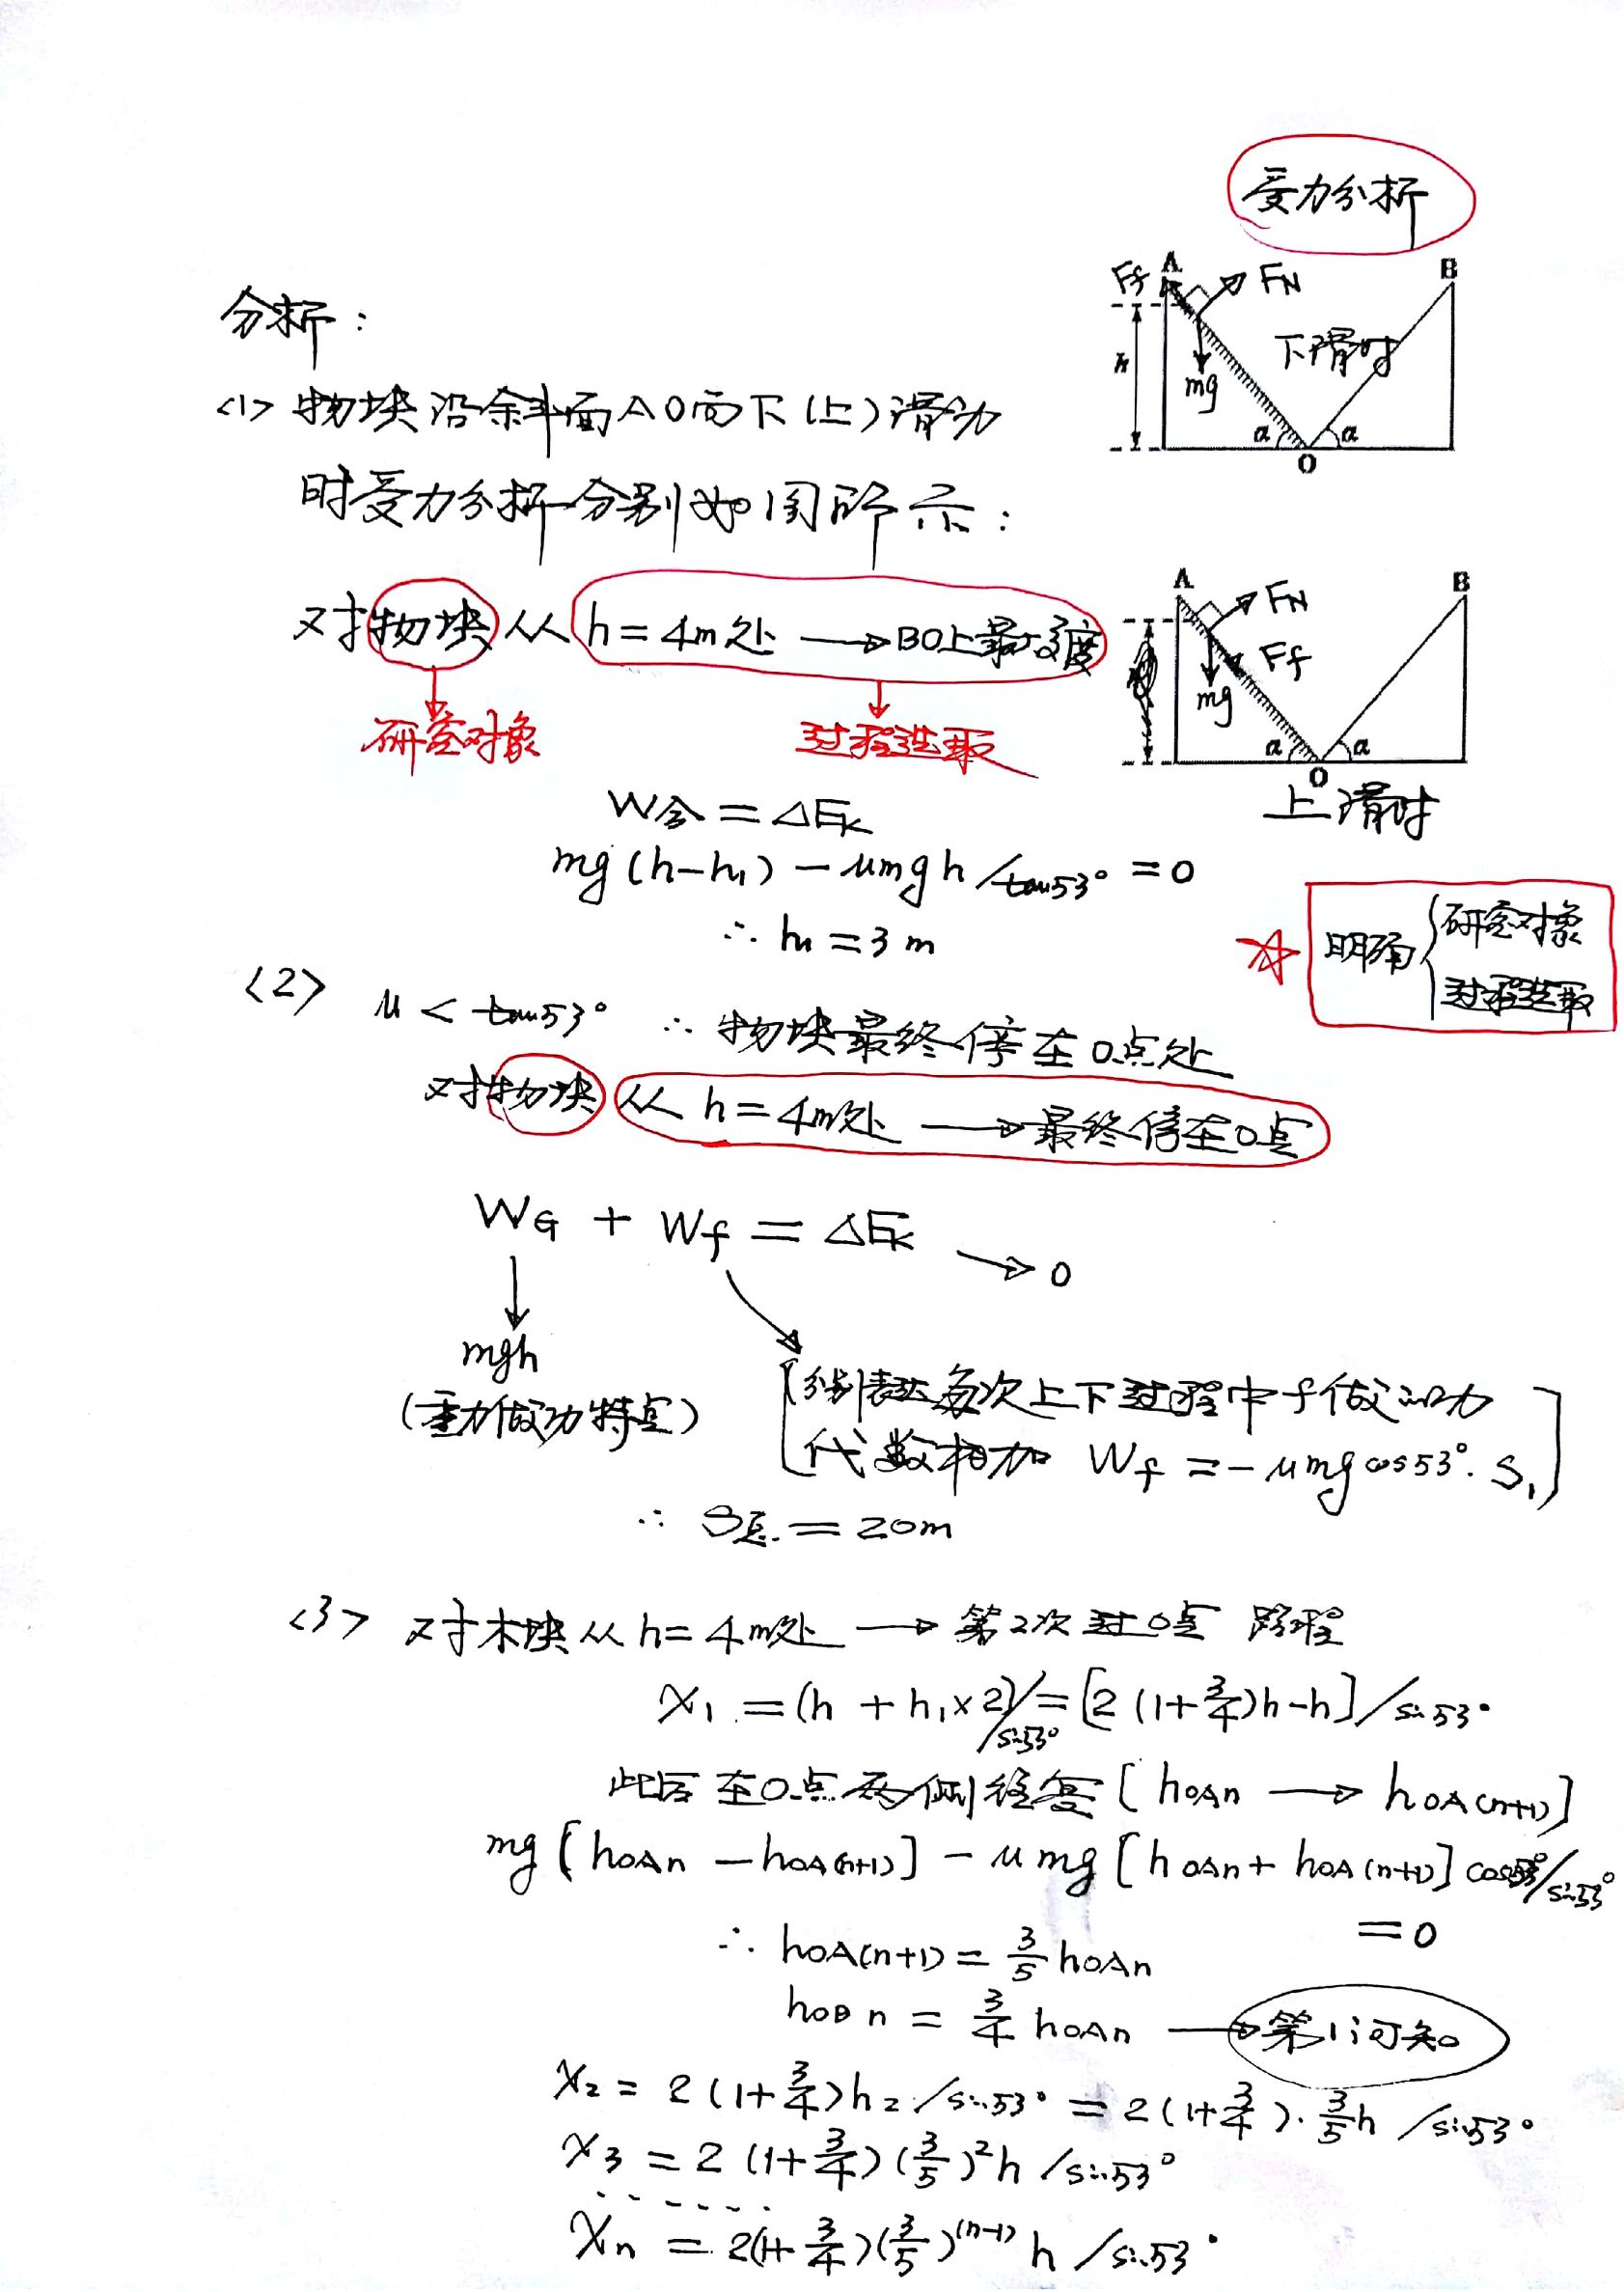 受力分析
Ff A FN B
下滑时
h
mg
α α
O
分析：
<1> 物块沿斜面AO向下(上)滑动
时受力分析分别如图所示：
对物块从 h=4m处 → BO上最大高度
研究对象 过程选取
A FN B
Ff
mg
α α
O
上滑时
W合 = ΔEk
mg(h-h₁) - μmgh/tan53° = 0
∴ h₁ = 3m
☆ 明确 { 研究对象
过程选取
<2> μ < tan53° ∴ 物块最终停在O点处
对物块 从 h=4m处 → 最终停在O点
WG + Wf = ΔEk → 0
mgh
(重力做功特点)
[分别表达每次上下过程中f做的功
代数相加 Wf = -μmgcos53°·S₁]
∴ S总 = 20m
<3> 对木块从 h=4m处 → 第2次过O点 路程
X₁ = (h + h₁×2)/sin53° = [2(1+3/4)h-h]/sin53°
此后在O点两侧往复 [hOAn → hOA(n+1)]
mg[hOAn - hOA(n+1)] - μmg[hOAn + hOA(n+1)]cos53°/sin53°
= 0
∴ hOA(n+1) = 3/5 hOAn
hOBn = 3/4 hOAn → 第1问可知
X₂ = 2(1+3/4)h₂/sin53° = 2(1+3/4)·3/5h/sin53°
X₃ = 2(1+3/4)(3/5)²h/sin53°
- - - - - -
Xn = 2(1+3/4)(3/5)⁽ⁿ⁻¹⁾h/sin53°